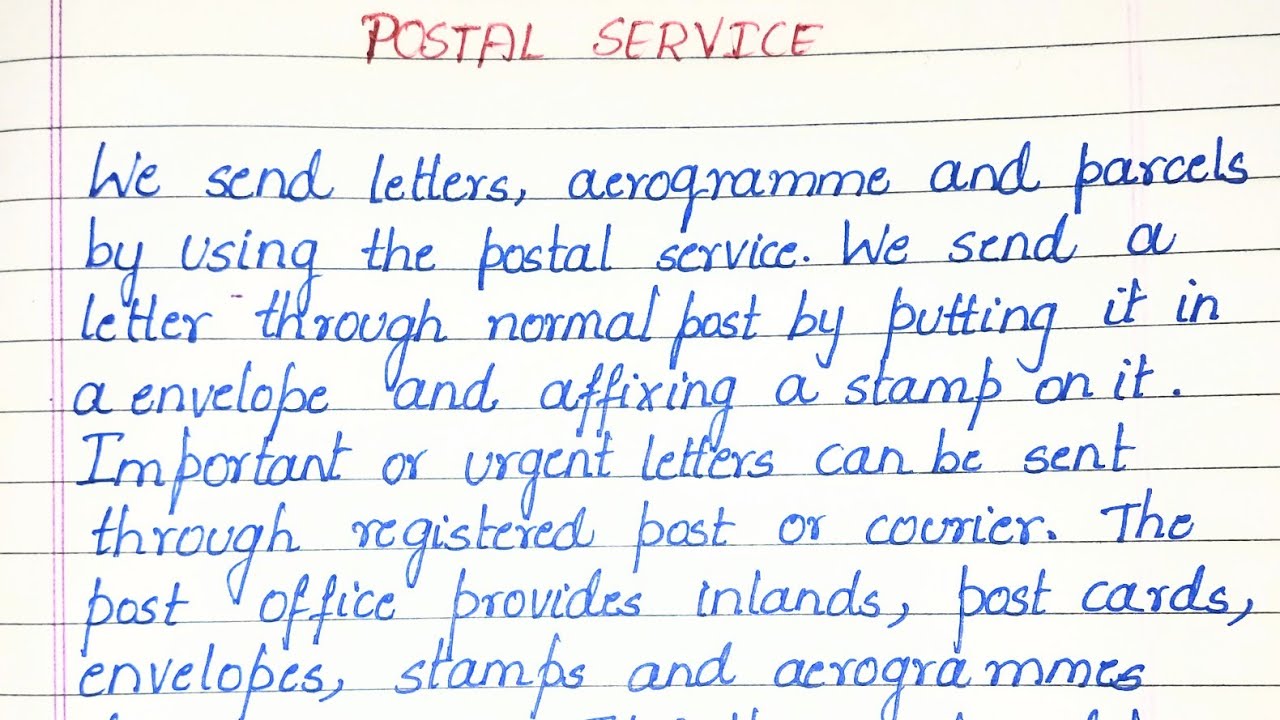 POSTAL SERVICE
We send letters, aerogramme and parcels
by using the postal service. We send a
letter through normal post by putting it in
a envelope and affixing a stamp on it.
Important or urgent letters can be sent
through registered post or courier. The
post office provides inlands, post cards,
envelopes, stamps and aerogrammes